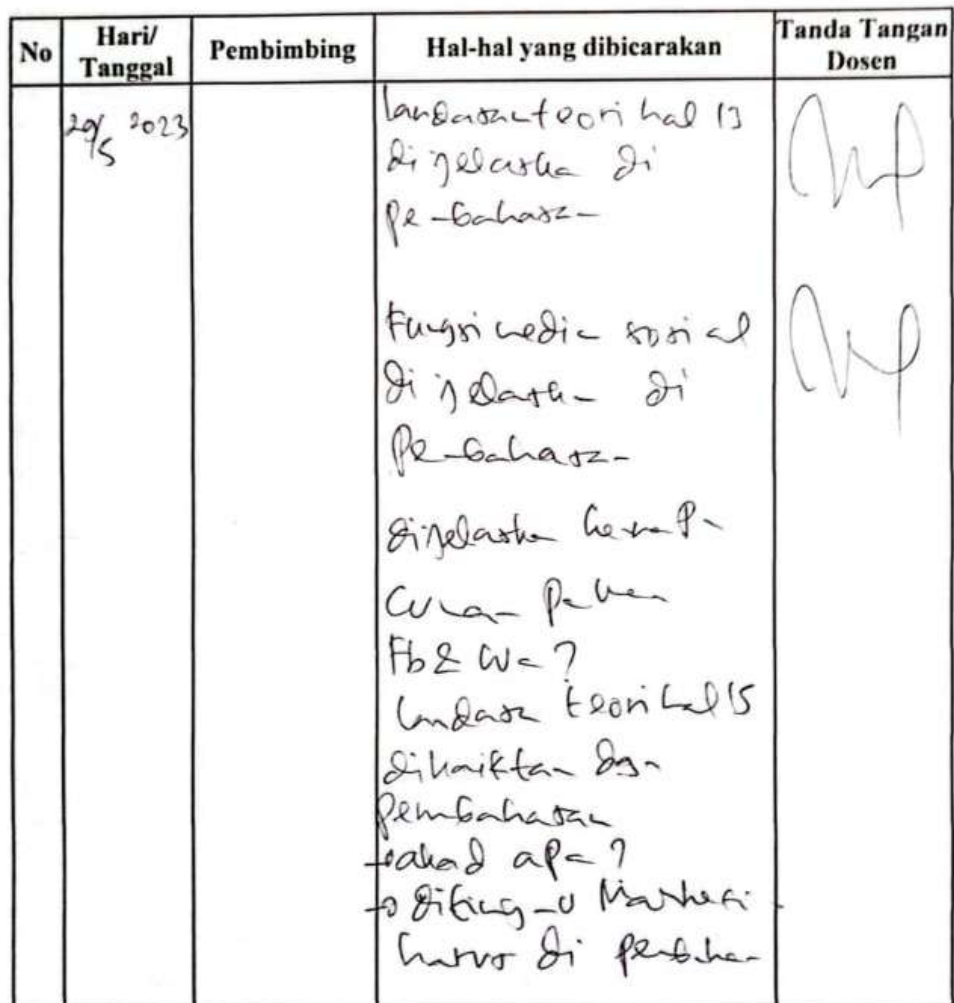 No
Hari/
Tanggal
Pembimbing
Hal-hal yang dibicarakan
Tanda Tangan
Dosen
29/5 2023
landasan teori hal 13
dijelaska di
pembahasan
Fungsi media sosial
dijelaskan di
Pembahasan
dijelaskan kenapa
Cuman Pakai
Fb & Wa ?
landasan teori hal 15
dikaitkan dgn
pembahasan
→ akad apa ?
→
harus di